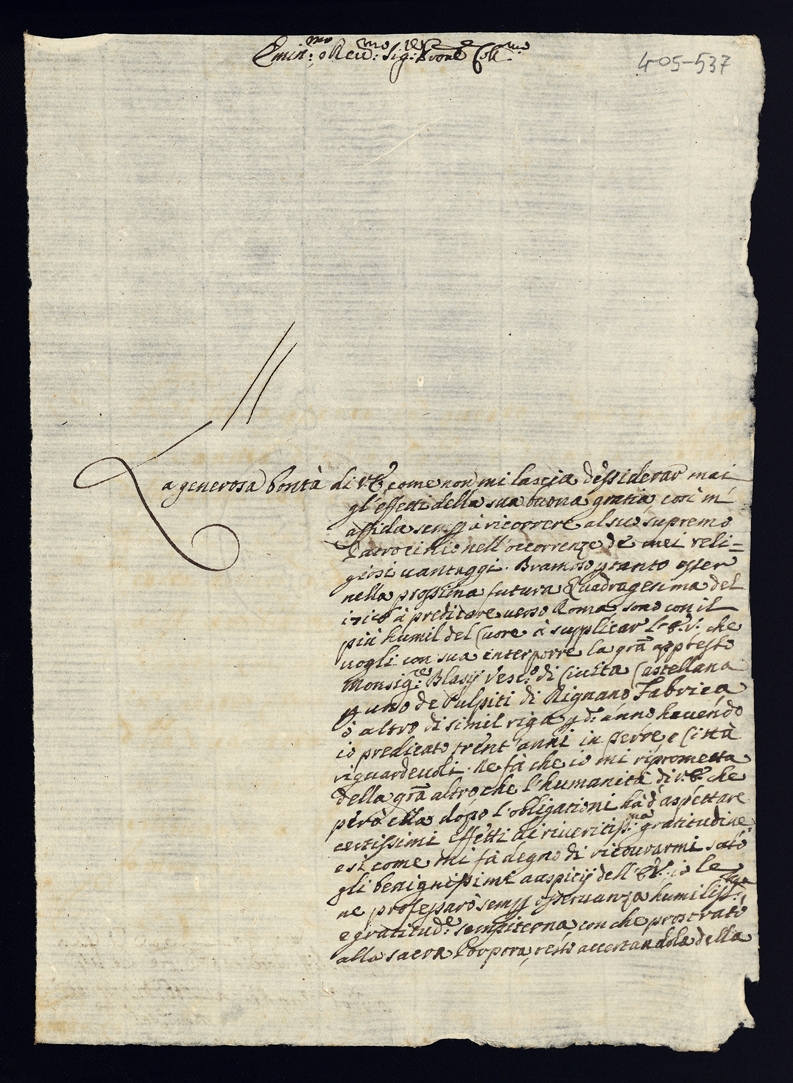 Emin:mo e Reu:mo Sig:re Prone Coll:mo
405-537
La generosa bontà di V.E. come non mi lascia dessiderar mai
gl'effetti della sua buona gratia cosi m'
affida semp à ricorrere al suo supremo
Patrocinio nell'occorrenze de miei reli=
giosi uantaggi. Bramoso ptanto esser
nella prossima futura Quadragesima del
à predicare uerso Roma sono con il
più humil del Cuore à supplicar V.E. che
uogli con sua interporre la gra appresso
Monsig:re Blasij Vesc:o di Ciuita Castellana
p uno de Pulpiti di Rignano Fabrica
ò altro di simil riga p dº anno hauendo
io predicato trent'anni in terre e Città
riguardeuoli. Ne fà che io mi riprometta
della gra altro, che l'humanità di V.E. che
però ella dopo l'obligationi hà d'aspettare
certissimi effetti di riueritiss:ma gratitudine
e si come mi fà degno di ricourarmi sotto
gli benignissimi auspicij dell'E.V. io le
ne professarò semp osseruanza humiliss:ma
e gratitud:e sempiterna con che prostrato
alla sacra Porpora, resto accertandola della